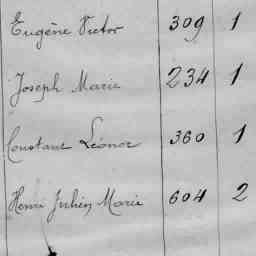 Eugène Victor 309 1
Joseph Marie 234 1
Constant Léonor 360 1
Henri Julien Marie 604 2